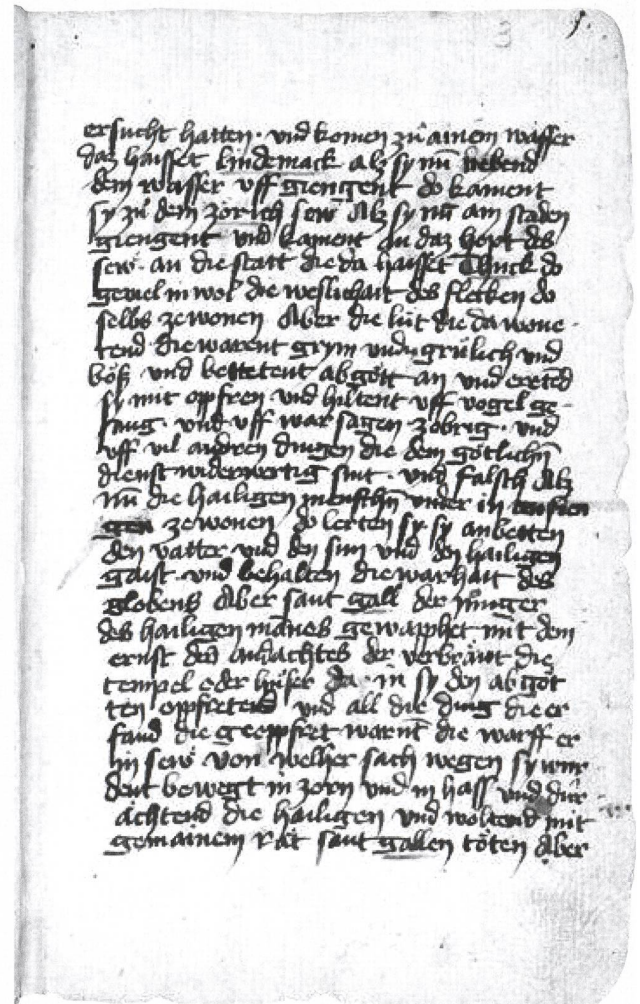 5.
ersucht hatten · vnd komen zů ainem wasser
daz haisset lindemack alz sy nu̅ nebend
dem wasser vff giengent do kament
sy zů dem zörich sew Alz sy nu̅ am staden
giengent vnd kament zu daz hopt des
sew · an die statt die da haisset Thuck do
geviel in wol die weslichait des flecken do
selbs ze wonen Aber die lüt die da wone -
tend die warent grym vnd grülich vnd
böß vnd bettetent abgött an vnd eretēd
sy mit opffren vnd hiltent vff vogel ge -
sang · vnd vff war sagen zobrig · vnd
vff vil andren dingen die dem götlichn̄
dienst widerwertig sint · vnd falsch Alz
nu̅ die hailigen menschn̄ vnder in
ze wonen do lerten sy sy anbetten
den vatter vnd den sun vnd den hailigen
gaist · vnd behalten die warhait des
globens Aber sant gall der junger
des hailigen manes gewapphet mit dem
ernst des andachtes der verbrant die
tempel oder hüser da · in sy den abgöt
ten opffretend vnd all die ding die er
fand die geopffret warnt die warff er
in sew von welher sach wegen sy wur -
dent bewegt in zorn vnd in hass vnd dur -
ächtend die hailigen vnd woltend mit
gemainem rät sant gallen töten Aber